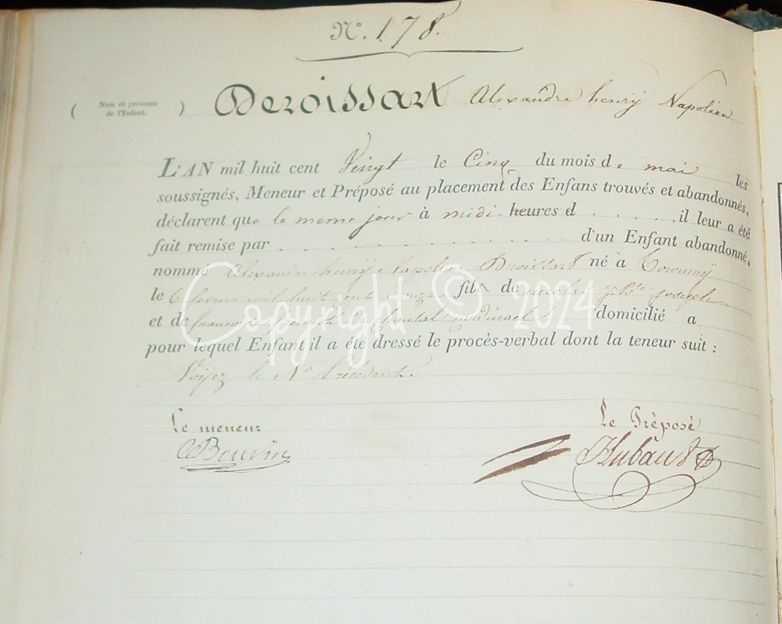 N°. 178.
( Nom et prénoms de l'Enfant. ) Deroissart Alexandre henry Napoléon
L'AN mil huit cent Vingt le Cinq du mois de mai les
soussignés, Meneur et Préposé au placement des Enfans trouvés et abandonnés,
déclarent que le meme jour à midi heures d . . . . . . il leur a été
fait remise par . . . . . . . . . . . . . . . . . . d'un Enfant abandonné
nommé alexandre henry Napoléon Droissart né à Tournay
le 6 fevrier mil huit cent fils de j. Bte joseph
et de domicilié a
pour lequel Enfant il a été dressé le procès-verbal dont la teneur suit :
Voyez le N° Précédent.
Le meneur Le Préposé
Bouvin Hubaut
Copyright © 2024